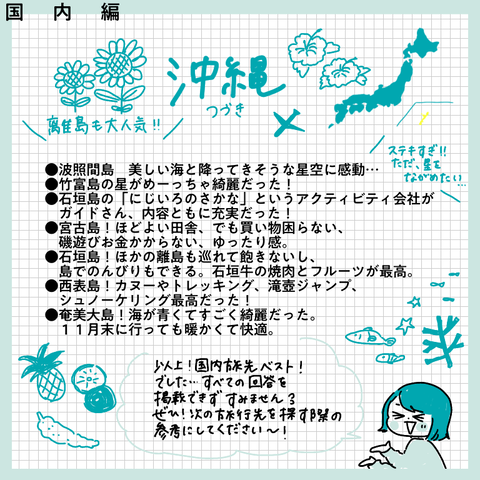 国内編
沖縄
つづき
離島も大人気!!
ステキすぎ!!
ただ、星を
ながめたい…
●波照間島　美しい海と降ってきそうな星空に感動…
●竹富島の星がめーっちゃ綺麗だった！
●石垣島の「にじいろのさかな」というアクティビティ会社が
ガイドさん、内容ともに充実だった！
●宮古島！ほどよい田舎、でも買い物困らない、
磯遊びお金かからない、ゆったり感。
●石垣島！ほかの離島も巡れて飽きないし、
島でのんびりもできる。石垣牛の焼肉とフルーツが最高。
●西表島！カヌーやトレッキング、滝壺ジャンプ、
シュノーケリング最高だった！
●奄美大島！海が青くてすごく綺麗だった。
１１月末に行っても暖かくて快適。
以上！国内旅先ベスト！
でした…すべての回答を
掲載できずすみません？
ぜひ！次の旅行先を探す際の
参考にしてください〜！